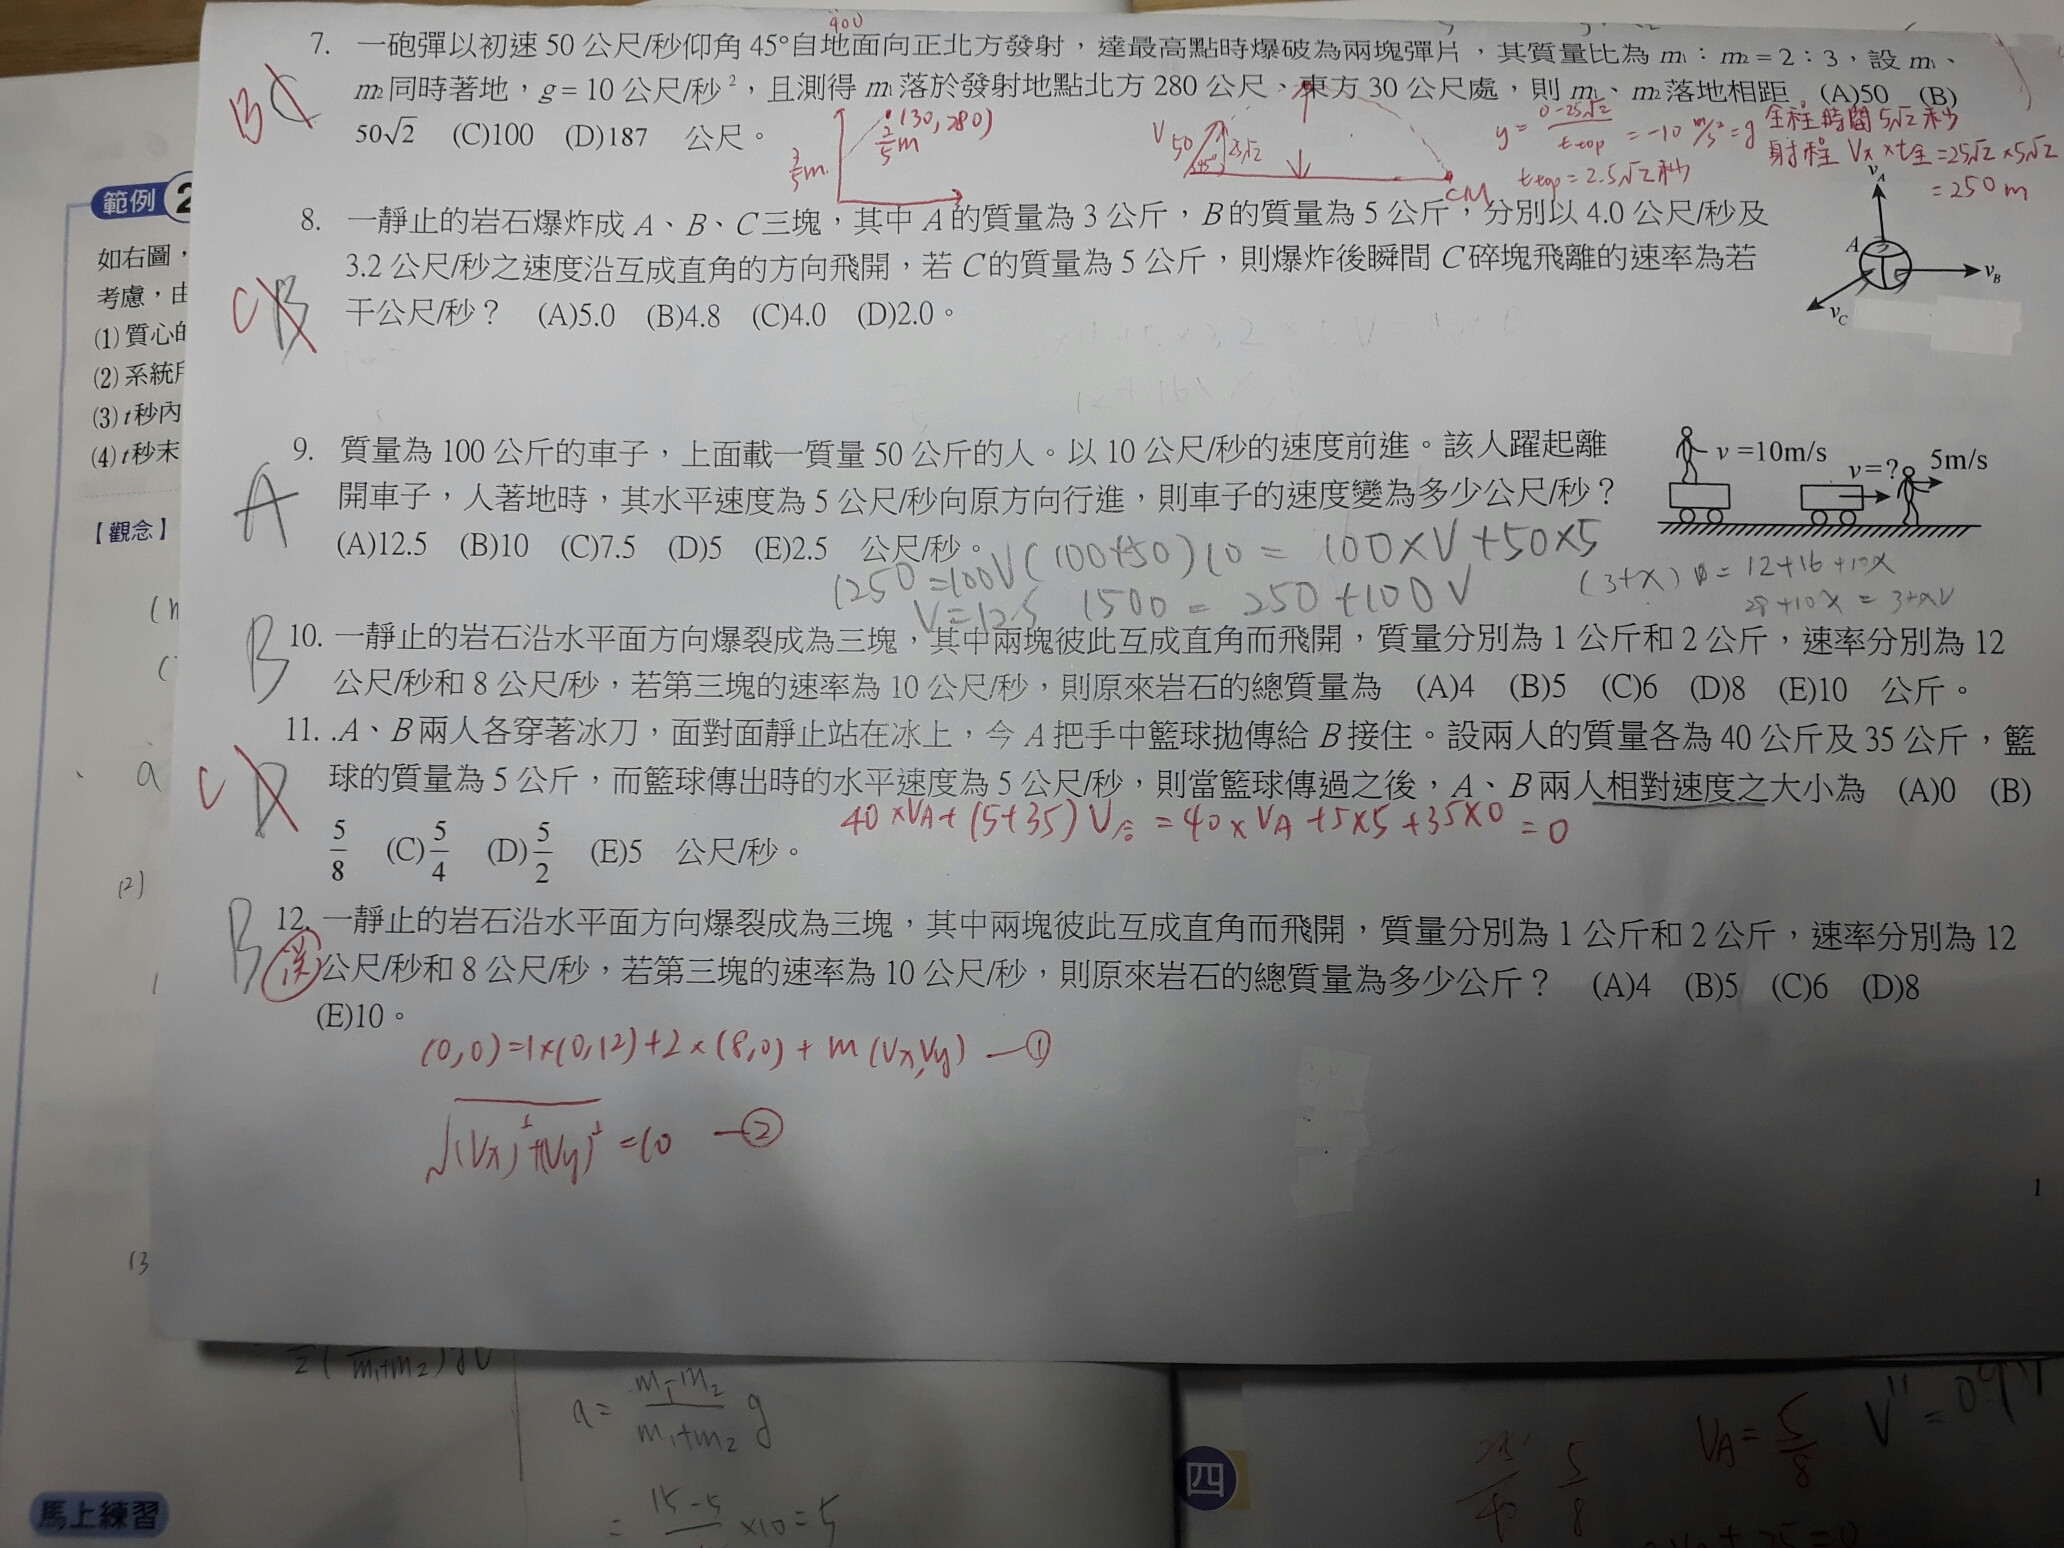 400
7. 一砲彈以初速 50 公尺/秒仰角 45°自地面向正北方發射，達最高點時爆破為兩塊彈片，其質量比為 m₁：m₂ = 2：3，設 m₁、
m₂ 同時著地，g = 10 公尺/秒²，且測得 m₁ 落於發射地點北方 280 公尺、東方 30 公尺處，則 m₁、m₂ 落地相距 (A)50 (B)
50√2 (C)100 (D)187 公尺。
B C
(30, 280)
2/5 m
3/5 m
V 50
45°
25√2
CM
y = (0-25√2)/t top = -10 m/s² = g
t top = 2.5√2 秒
全程時間 5√2 秒
射程 Vx × t全 = 25√2 × 5√2
= 250 m
8. 一靜止的岩石爆炸成 A、B、C 三塊，其中 A 的質量為 3 公斤，B 的質量為 5 公斤，分別以 4.0 公尺/秒及
3.2 公尺/秒之速度沿互成直角的方向飛開，若 C 的質量為 5 公斤，則爆炸後瞬間 C 碎塊飛離的速率為若
干公尺/秒？ (A)5.0 (B)4.8 (C)4.0 (D)2.0。
C B
vA
A
vB
vC
9. 質量為 100 公斤的車子，上面載一質量 50 公斤的人。以 10 公尺/秒的速度前進。該人躍起離
開車子，人著地時，其水平速度為 5 公尺/秒向原方向行進，則車子的速度變為多少公尺/秒？
(A)12.5 (B)10 (C)7.5 (D)5 (E)2.5 公尺/秒。
A
v =10m/s
v=?
5m/s
(100+50)10 = 100×V+50×5
1500 = 250+100V
1250=100V
V=12.5
= 12+16+10x
28+10x = 3+xV
10. 一靜止的岩石沿水平面方向爆裂成為三塊，其中兩塊彼此互成直角而飛開，質量分別為 1 公斤和 2 公斤，速率分別為 12
公尺/秒和 8 公尺/秒，若第三塊的速率為 10 公尺/秒，則原來岩石的總質量為 (A)4 (B)5 (C)6 (D)8 (E)10 公斤。
B
11. .A、B 兩人各穿著冰刀，面對面靜止站在冰上，今 A 把手中籃球拋傳給 B 接住。設兩人的質量各為 40 公斤及 35 公斤，籃
球的質量為 5 公斤，而籃球傳出時的水平速度為 5 公尺/秒，則當籃球傳過之後，A、B 兩人相對速度之大小為 (A)0 (B)
5/8 (C)5/4 (D)5/2 (E)5 公尺/秒。
C D
40×VA+(5+35)V合=40×VA+5×5+35×0=0
12. 一靜止的岩石沿水平面方向爆裂成為三塊，其中兩塊彼此互成直角而飛開，質量分別為 1 公斤和 2 公斤，速率分別為 12
公尺/秒和 8 公尺/秒，若第三塊的速率為 10 公尺/秒，則原來岩石的總質量為多少公斤？ (A)4 (B)5 (C)6 (D)8
(E)10。
B
(0,0)=1×(0,12)+2×(8,0)+m(Vx,Vy) —①
√(Vx)²+(Vy)² =10 —②
1
範例 2
如右圖，
考慮，由
(1) 質心的
(2) 系統所
(3) t 秒內
(4) t 秒末
【觀念】
a
(2)
(3
a= (m₁-m₂)/(m₁+m₂) g
×10=5
馬上練習
四
5/8
VA= 5/8